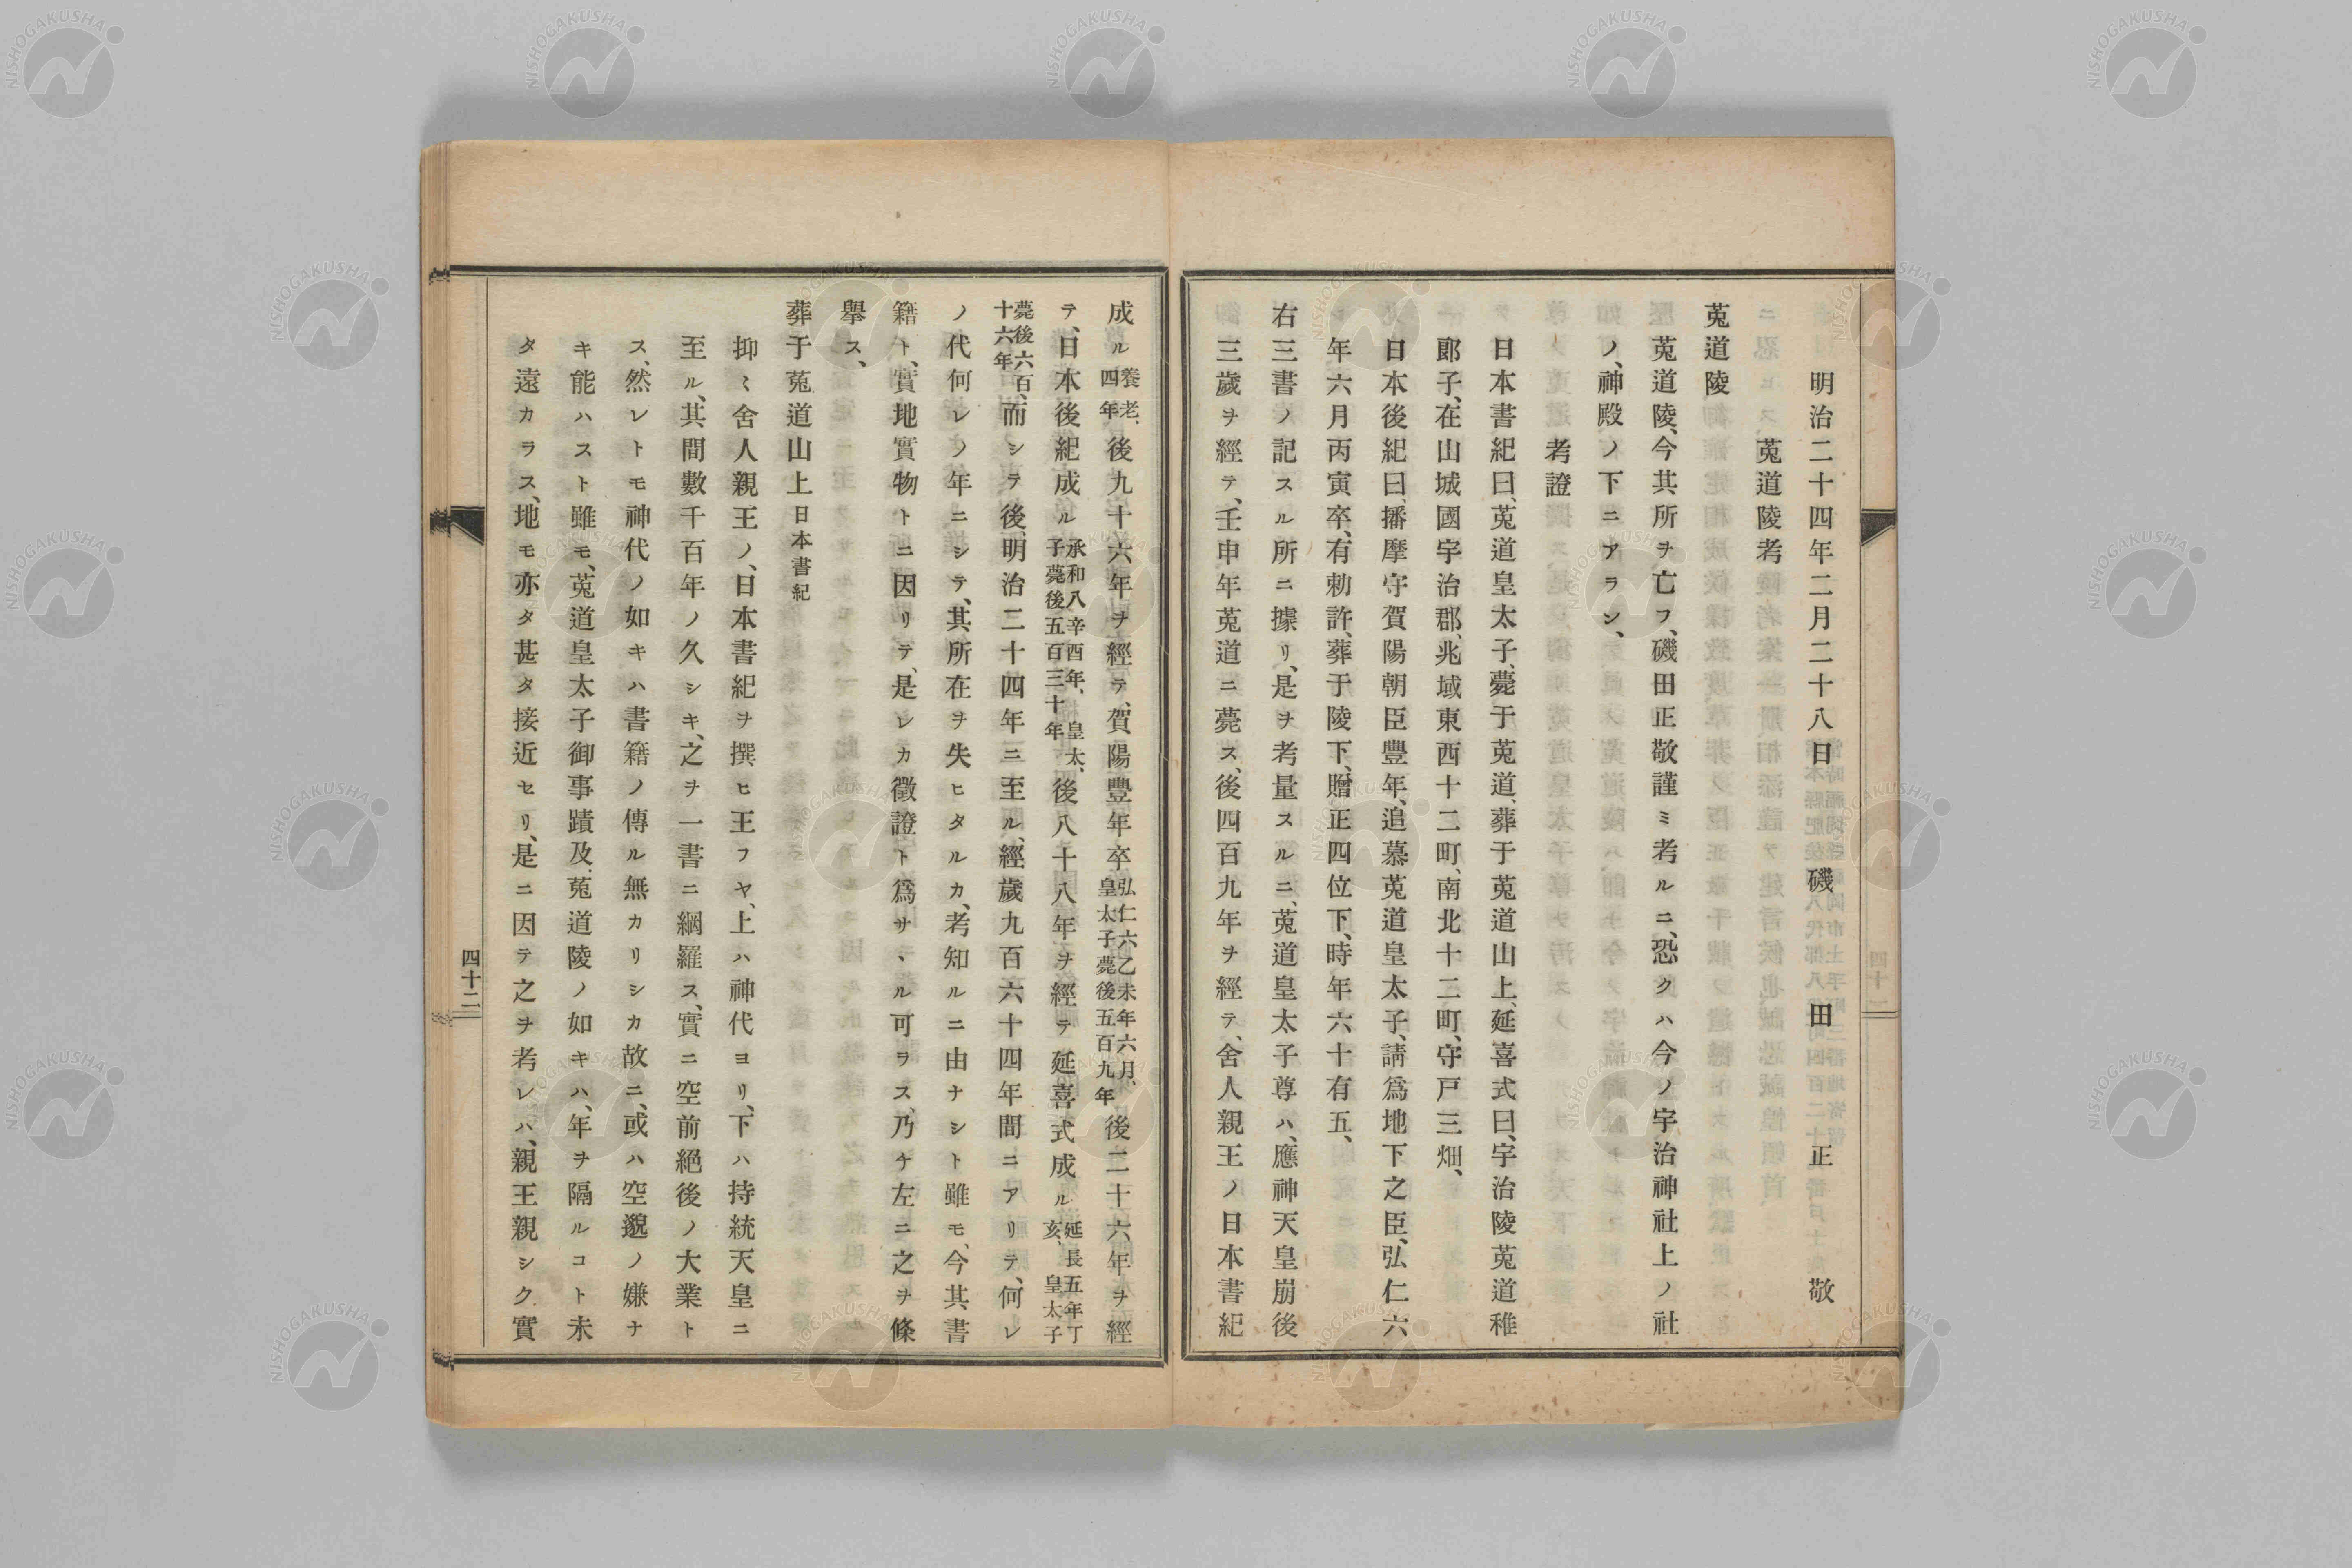 明治二十四年二月二十八日　磯田正敬
菟道陵考
菟道陵
菟道陵、今其所ヲ亡フ、磯田正敬謹ミ考ルニ、恐クハ今ノ宇治神社上ノ社
ノ、神殿ノ下ニアラン、
考證
日本書紀曰、菟道皇太子、薨于菟道、葬于菟道山上、延喜式曰、宇治陵菟道稚
郎子、在山城國宇治郡、兆域東西十二町、南北十二町、守戸三畑、
日本後紀曰、播摩守賀陽朝臣豐年、追慕菟道皇太子、請爲地下之臣、弘仁六
年六月丙寅卒、有勅許、葬于陵下、贈正四位下、時年六十有五、
右三書ノ記スル所ニ據リ、是ヲ考量スルニ、菟道皇太子尊ハ、應神天皇崩後
三歲ヲ經テ、壬申年菟道ニ薨ス、後四百九年ヲ經テ、舍人親王ノ日本書紀
成ル養老、四年後九十六年ヲ經テ、賀陽豐年卒弘仁六乙未年六月、皇太子薨後五百九年後二十六年ヲ經
テ、日本後紀成ル承和八辛酉年、皇太、子薨後五百三十年後八十八年ヲ經テ延喜式成ル延長五年丁亥、皇太子
薨後六百、十六年而シテ後、明治二十四年ニ至ル、經歲九百六十四年間ニアリテ、何レ
ノ代何レノ年ニシテ、其所在ヲ失ヒタルカ、考知ルニ由ナシト雖モ、今其書
籍ト、實地實物トニ因リテ、是レカ徵證ト爲サヽル可ラス、乃チ左ニ之ヲ條
擧ス、
葬于菟道山上日本書紀
抑〻舍人親王ノ、日本書紀ヲ撰ヒ王フヤ、上ハ神代ヨリ、下ハ持統天皇ニ
至ル、其間數千百年ノ久シキ、之ヲ一書ニ綱羅ス、實ニ空前絕後ノ大業ト
ス、然レトモ神代ノ如キハ書籍ノ傳ル無カリシカ故ニ、或ハ空邈ノ嫌ナ
キ能ハスト雖モ、菟道皇太子御事蹟及菟道陵ノ如キハ、年ヲ隔ルコト未
タ遠カラス、地モ亦タ甚タ接近セリ、是ニ因テ之ヲ考レハ、親王親シク實
四十二
NISHOGAKUSHA